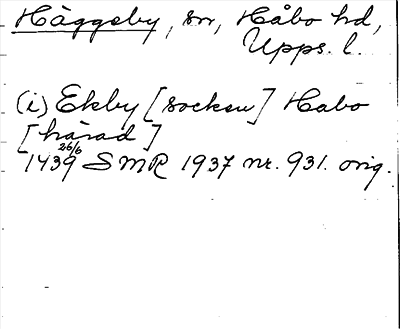 Häggeby, sn, Håbo hd,
Upps. l.
(i) Ekby [socken] Habo
[härad]
26/6
1439 SMR 1937 nr. 931. orig.